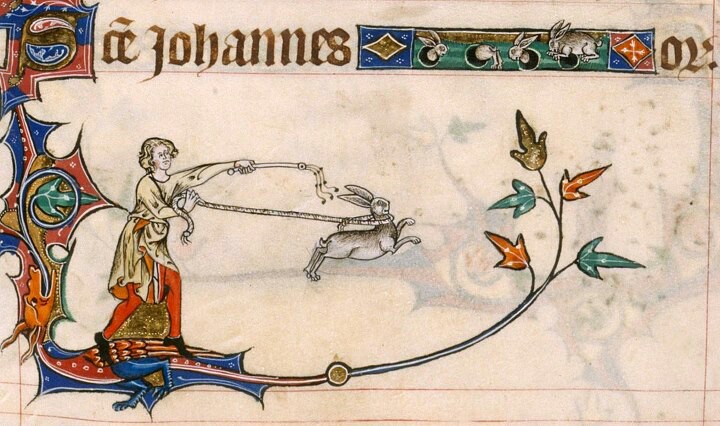 Sc̄e Johannes or: